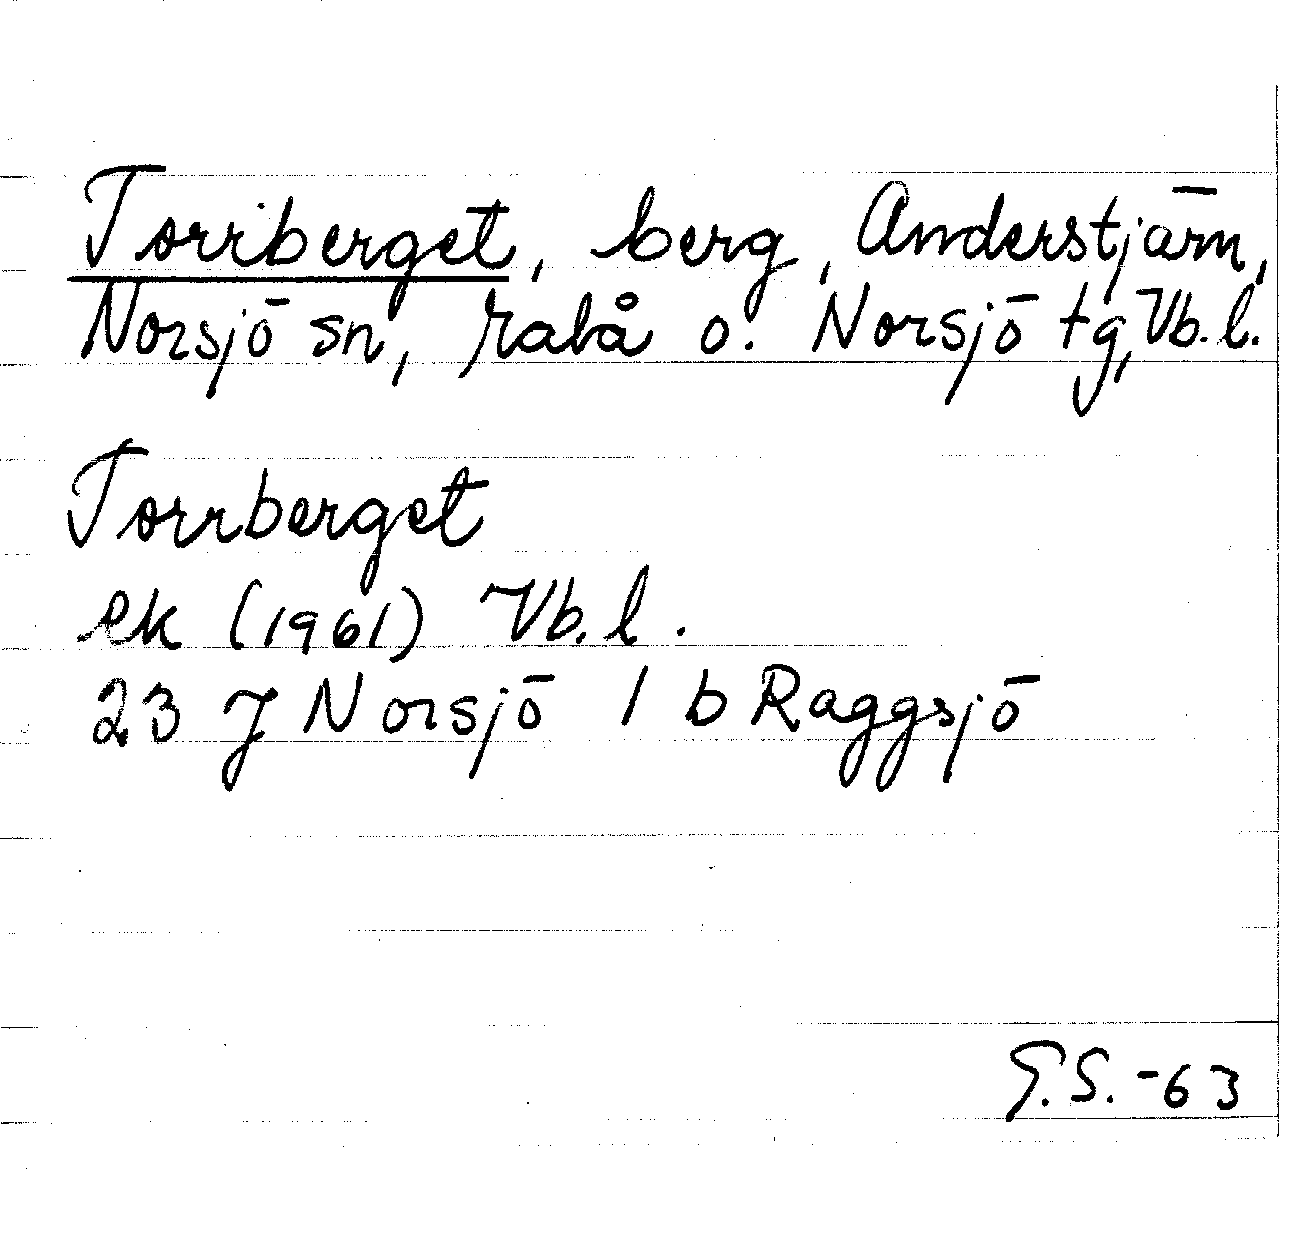 Torrberget, berg, Anderstjärn,
Norsjö sn, Malå o. Norsjö tg, Vb. l.
Torrberget
ek (1961) Vb. l.
23 J Norsjö 1 b Raggsjö
G.S. -63